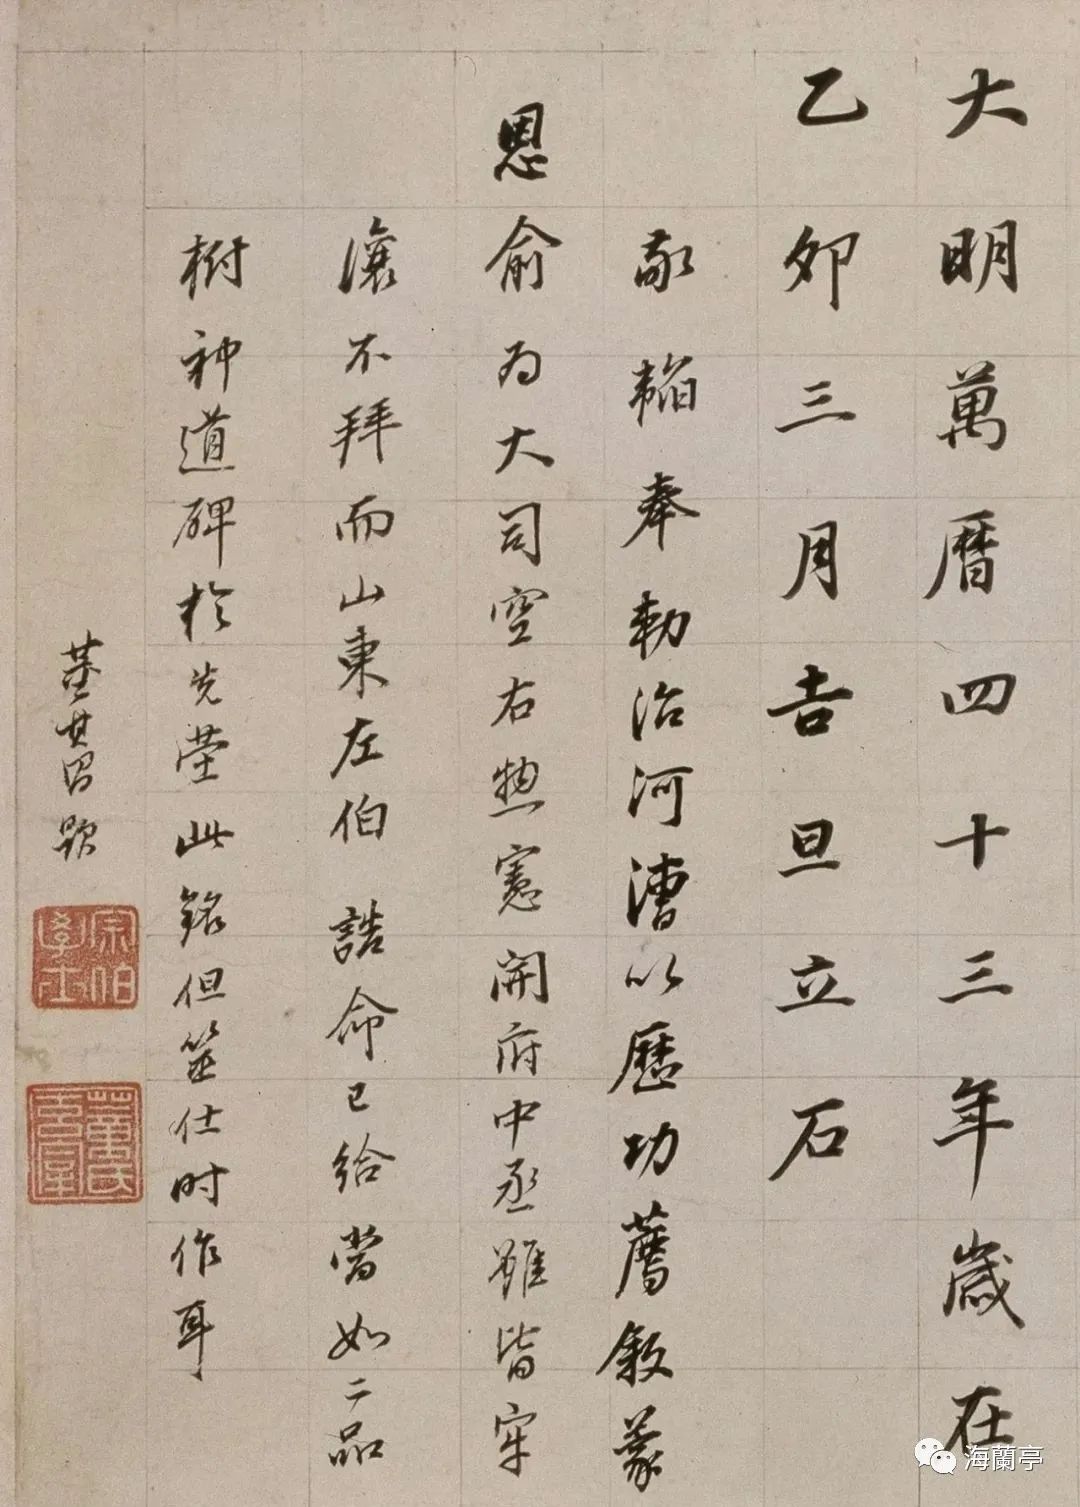 大明萬曆四十三年歲在
乙卯三月吉旦立石
敬韜奉勅治河漕以歷功薦敘蒙
恩俞為大司空右惣憲開府中丞雖皆牢
讓不拜而山東左伯誥命已給當如二品
樹神道碑於先塋此銘但筮仕时作耳
董其昌題
宗伯學士
董氏玄宰
海蘭亭